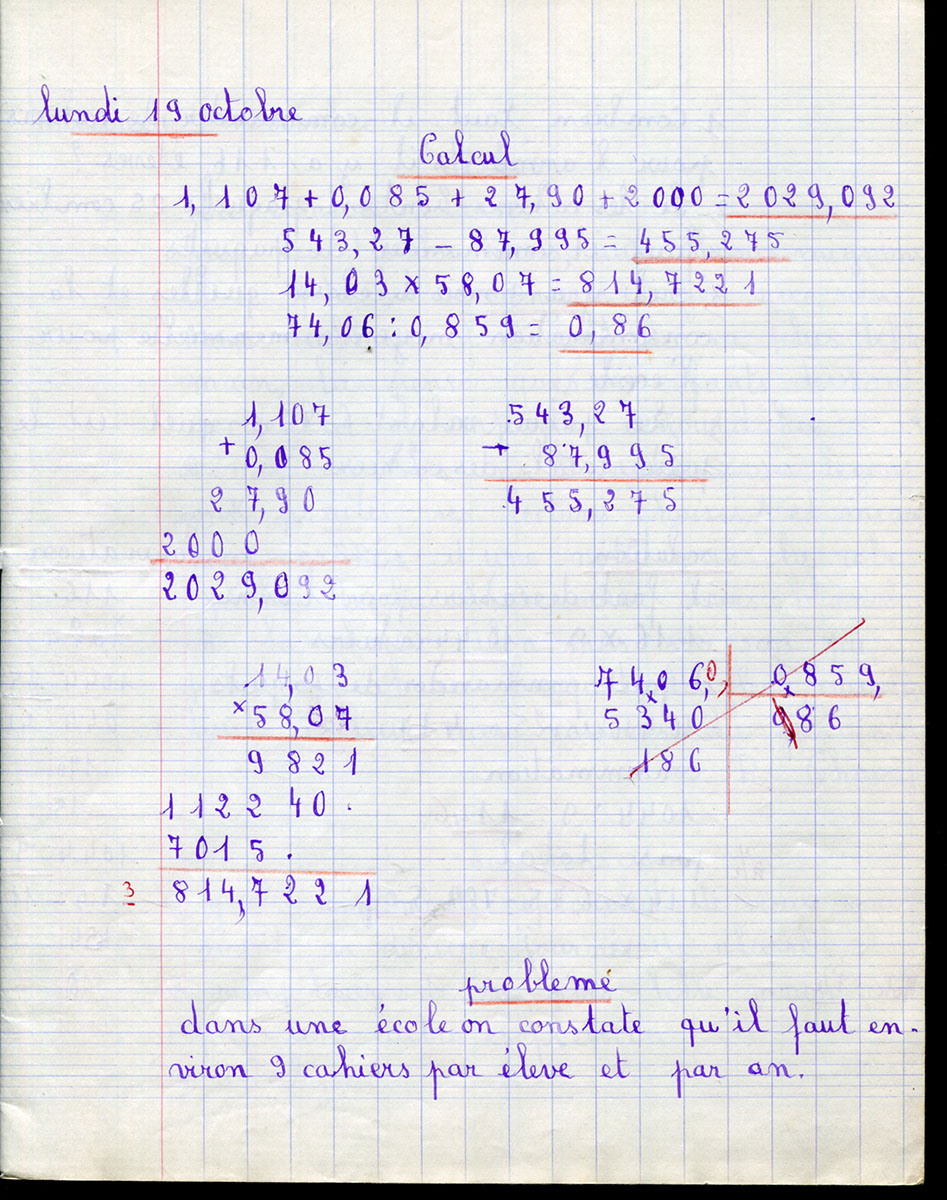 lundi 19 octobre
Calcul
1,107 + 0,085 + 27,90 + 2000 = 2029,092
543,27 - 87,995 = 455,275
14,03 × 58,07 = 814,7221
74,06 : 0,859 = 0,86
1,107
+ 0,085
27,90
2000
2029,092
543,27
- 87,995
455,275
14,03
× 58,07
9821
112240.
7015.
3 814,7221
74,06,0, 0,859,
5340 986
186
probleme
dans une école on constate qu'il faut en-
viron 9 cahiers par éleve et par an.